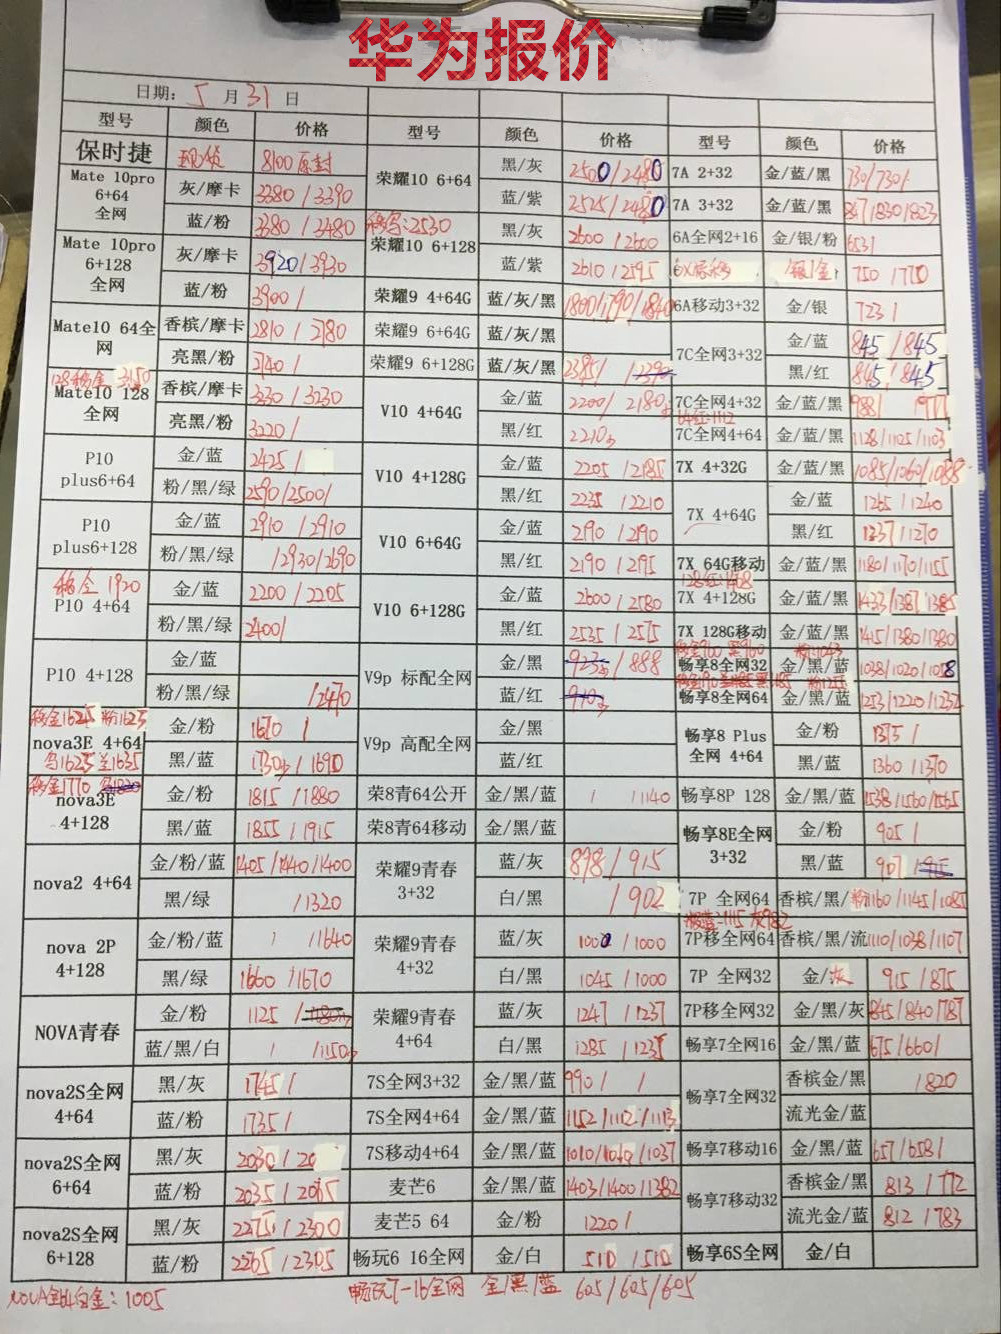 华为报价
日期: 5 月 31 日
型号 颜色 价格 型号 颜色 价格 型号 颜色 价格
保时捷 现货 8100 原封 荣耀10 6+64 黑/灰 2500/2480 7A 2+32 金/蓝/黑 730/730/
Mate 10pro 6+64 全网 灰/摩卡 3380/3390 蓝/紫 2525/2480 7A 3+32 金/蓝/黑 847/830/823
蓝/粉 3380/3480 荣耀10 6+128 :2530 黑/灰 2600/2600 6A全网2+16 金/银/粉 653/
Mate 10pro 6+128 全网 灰/摩卡 3920/3930 蓝/紫 2610/2595 银/金 750/770
蓝/粉 3900/ 荣耀9 4+64G 蓝/灰/黑 1800/1790/1840 6A移动3+32 金/银 723/
Mate10 64全网 香槟/摩卡 2810/2780 荣耀9 6+64G 蓝/灰/黑 7C全网3+32 金/蓝 845/845
亮黑/粉 2740/ 荣耀9 6+128G 蓝/灰/黑 黑/红 845/845
128移金 3150
Mate10 128全网 香槟/摩卡 3230/3230 V10 4+64G 金/蓝 2200/2180 7C全网4+32 金/蓝/黑
亮黑/粉 3220/ 黑/红 2210 7C全网4+64 64红:1112 金/蓝/黑 1128/1105/1103
P10 plus6+64 金/蓝 2425/ V10 4+128G 金/蓝 2205/2185 7X 4+32G 金/蓝/黑 1085/1060/1088
粉/黑/绿 2590/2500/ 黑/红 2235/2210 7X 4+64G 金/蓝 1265/1240
P10 plus6+128 金/蓝 2910/2910 V10 6+64G 金/蓝 2190/2190 黑/红 1237/1270
粉/黑/绿 /2930/2690 黑/红 2190/2195 7X 64G移动 金/蓝/黑 1180/1170/1155
移金 1920
P10 4+64 金/蓝 2200/2205 V10 6+128G 金/蓝 2600/2580 7X 4+128G 金/蓝/黑 1433/1387/1385
粉/黑/绿 2400/ 黑/红 2535/2575 7X 128G移动 金/蓝/黑 1415/1380/1380
P10 4+128 金/蓝 V9p 标配全网 金/黑 923/888 畅享8全网32 金/黑/蓝 1038/1020/1018
粉/黑/绿 /2470 蓝/红 畅享8全网64 金/黑/蓝 1253/1220/1232
移金1625 粉1623
nova3E 4+64 金/粉 1670/ V9p 高配全网 金/黑 畅享8 Plus 全网 4+64 金/粉 1375/
黑/蓝 1730/1690 蓝/红 黑/蓝 1360/1370
移金1770
nova3E 4+128 金/粉 1815/1880 荣8青64公开 金/黑/蓝 /1140 畅享8P 128 金/黑/蓝 1538/1560/1565
黑/蓝 1855/1915 荣8青64移动 金/黑/蓝 畅享8E全网 3+32 金/粉 905/
nova2 4+64 金/粉/蓝 1405/1440/1400 荣耀9青春 3+32 蓝/灰 898/915 黑/蓝 907
黑/绿 /1320 白/黑 /902 7P 全网64 香槟/黑/粉 1160/1145/1085
nova 2P 4+128 金/粉/蓝 /1640 荣耀9青春 4+32 蓝/灰 1002/1000 7P移全网64 香槟/黑/流 1110/1038/1107
黑/绿 1660/1670 白/黑 1045/1000 7P 全网32 金/灰 915/875
NOVA青春 金/粉 1125/ 荣耀9青春 4+64 蓝/灰 1247/1237 7P移全网32 金/黑/灰 845/840/787
蓝/黑/白 /1150 白/黑 1285/1235 畅享7全网16 金/黑/蓝 675/660/
nova2S全网 4+64 黑/灰 1745/ 7S全网3+32 金/黑/蓝 990/ / 畅享7全网32 香槟金/黑 /820
蓝/粉 1735/ 7S全网4+64 金/黑/蓝 1152/1102/1113 流光金/蓝
nova2S全网 6+64 黑/灰 2030/20 7S移动4+64 金/黑/蓝 1010/1060/1037 畅享7移动16 金/黑/蓝 657/658/
蓝/粉 2035/2065 麦芒6 金/黑/蓝 1403/1400/1382 畅享7移动32 香槟金/黑 813/772
nova2S全网 6+128 黑/灰 2275/2300 麦芒5 64 金/粉 1220/ 流光金/蓝 812/783
蓝/粉 2265/2305 畅玩6 16全网 金/白 510/510 畅享6S全网 金/白
NOVA全64白金: 1005 畅玩7-16全网 金/黑/蓝 605/605/605